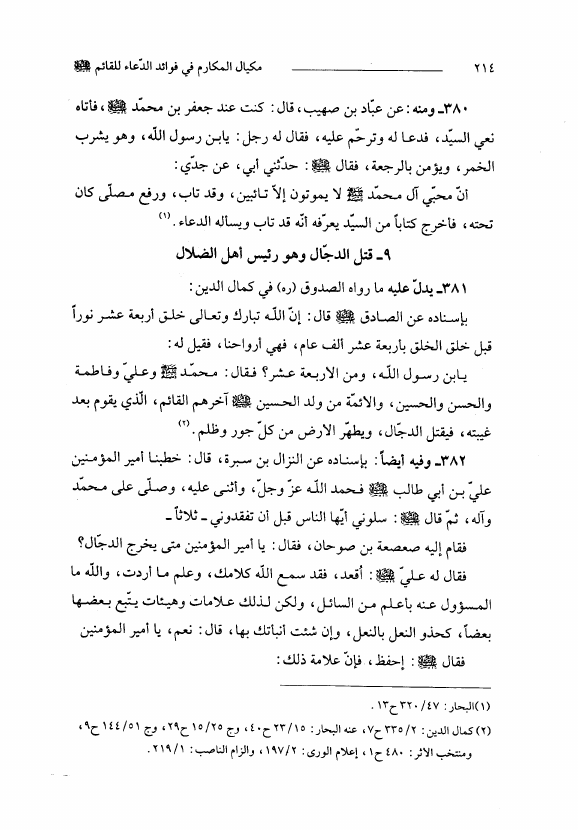 ٢١٤ مكيال المكارم في فوائد الدّعاء للقائم ﷺ
٣٨٠ـ ومنه: عن عبّاد بن صهيب، قال: كنت عند جعفر بن محمّد ﷺ، فأتاه
نعي السيّد، فدعا له وترحّم عليه، فقال له رجل: يابن رسول اللّه، وهو يشرب
الخمر، ويؤمن بالرجعة، فقال ﷺ: حدّثني أبي، عن جدّي:
أنّ محبّي آل محمّد ﷺ لا يموتون إلاّ تائبين، وقد تاب، ورفع مصلّى كان
تحته، فأخرج كتاباً من السيّد يعرّفه أنّه قد تاب ويسأله الدعاء. (١)
٩ـ قتل الدجّال وهو رئيس أهل الضلال
٣٨١ـ يدلّ عليه ما رواه الصدوق (ره) في كمال الدين:
بإسناده عن الصادق ﷺ قال: إنّ اللّه تبارك وتعالى خلق أربعة عشر نوراً
قبل خلق الخلق بأربعة عشر ألف عام، فهي أرواحنا، فقيل له:
يابن رسول اللّه، ومن الاربعة عشر؟ فقال: محمّد ﷺ وعليّ وفاطمة
والحسن والحسين، والائمّة من ولد الحسين ﷺ آخرهم القائم، الّذي يقوم بعد
غيبته، فيقتل الدجّال، ويطهّر الارض من كلّ جور وظلم. (٢)
٣٨٢ـ وفيه أيضاً: بإسناده عن النزال بن سبرة، قال: خطبنا أمير المؤمنين
عليّ بن أبي طالب ﷺ فحمد اللّه عزّ وجلّ، وأثنى عليه، وصلّى على محمّد
وآله، ثمّ قال ﷺ: سلوني أيّها الناس قبل أن تفقدوني ـ ثلاثاً ـ
فقام إليه صعصعة بن صوحان، فقال: يا أمير المؤمنين متى يخرج الدجّال؟
فقال له عليّ ﷺ: أقعد، فقد سمع اللّه كلامك، وعلم ما أردت، واللّه ما
المسؤول عنه بأعلم من السائل، ولكن لذلك علامات وهيئات يتّبع بعضها
بعضاً، كحذو النعل بالنعل، وإن شئت أنبأتك بها، قال: نعم، يا أمير المؤمنين
فقال ﷺ: إحفظ، فإنّ علامة ذلك:
(١) البحار: ٣٢٠/٤٧ ح١٣.
(٢) كمال الدين: ٣٣٥/٢ ح٧، عنه البحار: ٢٣/١٥ ح٤٠، وج ١٥/٢٥ ح٢٩، وج ١٤٤/٥١ ح٩،
ومنتخب الاثر: ٤٨٠ ح١، إعلام الورى: ١٩٧/٢، والزام الناصب: ٢١٩/١.